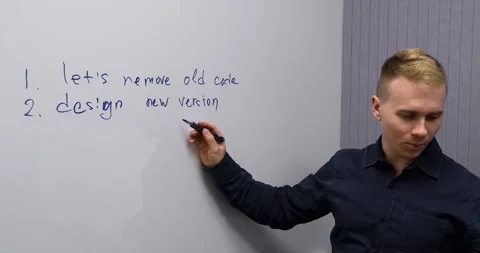 1. let's remove old code
2. design new version